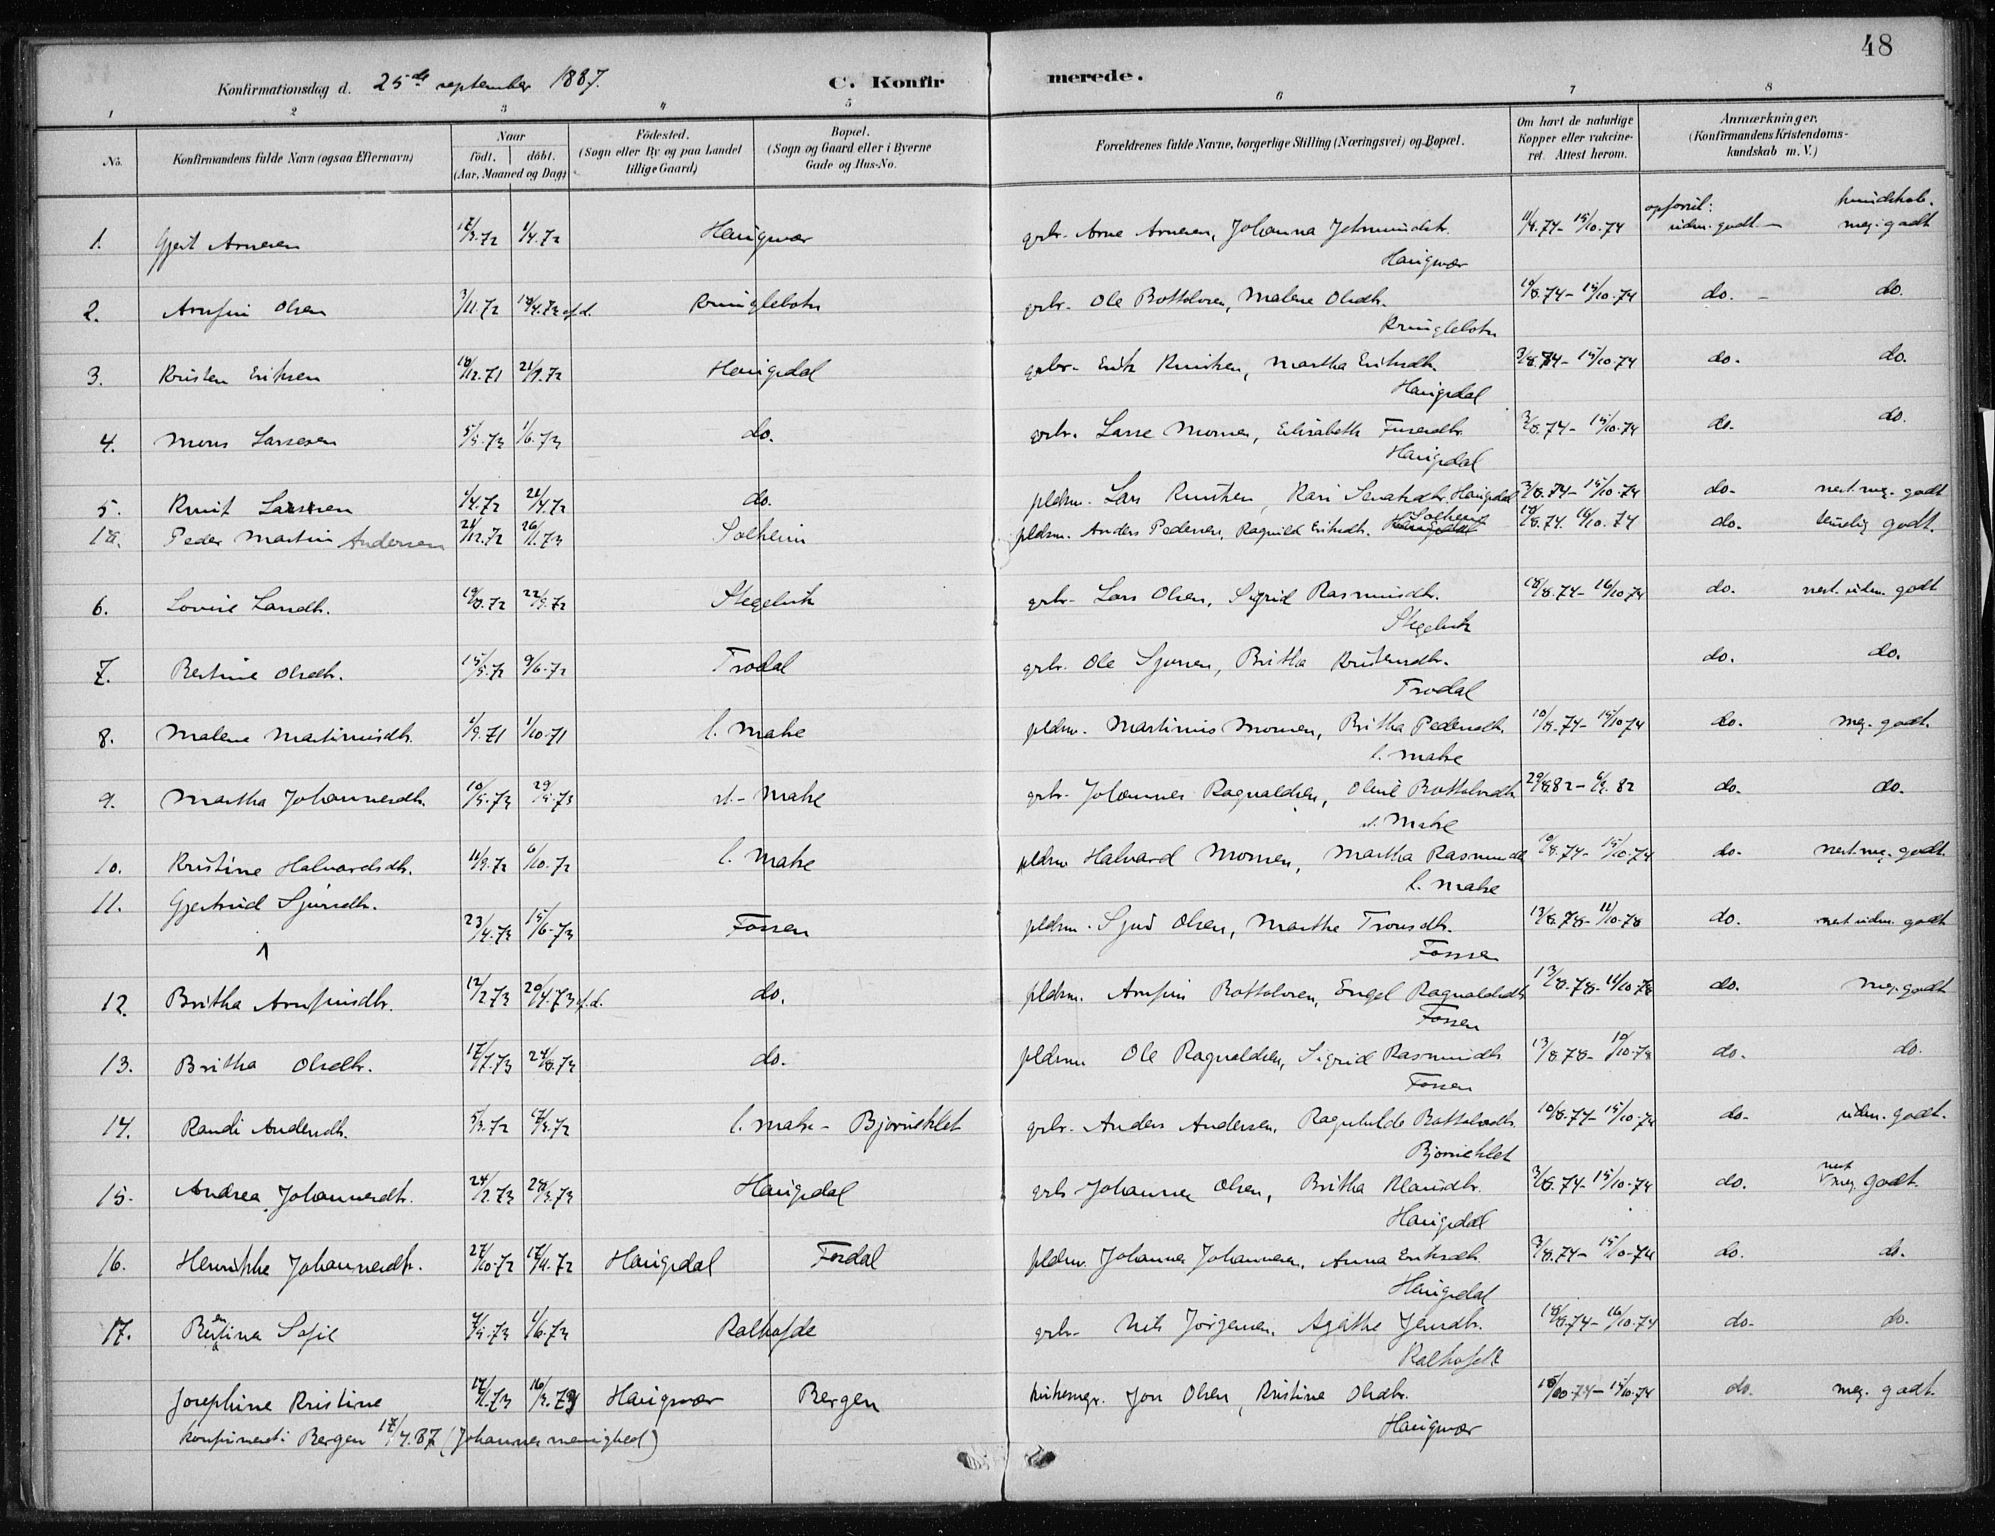 48
Konfirmationsdag d. 25de september 1887. C. Konfirmerede.
1 2 3 4 5 6 7 8
No. Konfirmandens fulde Navn (ogsaa Efternavn) Naar födt. döbt. (Aar, Maaned og Dag) Födested. (Sogn eller By og paa Landet tillige Gaard) Bopæl. (Sogn og Gaard eller i Byerne Gade og Hus-No. Forældrenes fulde Navne, borgerlige Stilling (Næringsvei) og Bopæl. Om havt de naturlige Kopper eller vakcineret. Attest herom. Anmærkninger. (Konfirmandens Kristendomskundskab m. V.)
1. Gjert Arnesen 12/3.72 1/4.72 Haugsvær grbr. Arne Arnesen, Johanna 11/8.74 - 15/10.74 opførsl: udm. godt - kundskab. meg. godt
Haugsvær
2. Arnfin Olsen 3/11.72 14/4.73 f.d. Kringlebotn grbr. Ole Bottolvsen, Malene Olsdtr. 10/8.74 - 15/10.74 do. - do.
Kringlebotn
3. Kristen Eriksen 18/12.71 21/1.72 Haugsdal grbr. Erik Knutsen, Martha Eriksdtr. 3/8.74 - 15/10.74 do. do.
Haugsdal
4. Mons Lassesen 5/5.73 1/6.73 do. grbr. Lasse Monsen, Elisabeth 3/8.74 - 15/10.74 do. do.
Haugsdal
5. Knut Larssen 1/4.72 21/4.72 do. pldsm. Lars Knutsen, Kari Haugsdal 3/8.74 - 15/10.74 do. nest. meg. godt
18. Peder Martin Andersen 21/12.72 26/1.73 Solheim pldsm. Anders Pedersen, Ragnild Eriksdtr. Haugsdal Solheim 18/8.74 16/10.74 do. temelig godt.
6. Lovise Larsdtr. 19/8.72 22/9.72 Stegelvik grbr. Lars Olsen, Sigrid Rasmusdtr. 18/8.74 - 16/10.74 do. nest. udm. godt
Stegelvik
7. Bertine Olsdtr. 15/5.72 9/6.72 Trodal grbr. Ole Sjursen, Britha Kristensdtr. do. do.
Trodal
8. Malene Martinusdtr. 1/9.71 1/10.71 l. Matre pldsm. Martinus Monsen, Britha Pedersdtr. 10/8.74 - 15/10.74 do. meg. godt
l. Matre
9. Martha Johannesdtr. 10/5.73 29/5.73 st. Matre grbr. Johannes Ragnaldsen, Oline Bottolvsdtr. 29/8.82 - 6/9.82 do. do.
st. Matre
10. Kristine Halvardsdtr. 11/9.72 6/10.72 l. Matre pldsm. Halvard Monsen, Martha Rasmusdt 10/8.74 - 15/10.74 do. nest meg. godt.
l. Matre
11. Gjertrud Sjursdtr. 23/4.73 15/6.73 Fossen pldsm. Sjur Olsen, Marthe Tronsdtr. 13/8.78 - 11/10.78 do. nest udm. godt
Fossen
12. Britha Arnfinsdtr. 12/2.73 20/4.73 f.d. do. pldsm. Arnfin Bottolvsen, Engel Ragnaldsdt 13/8.78 - 11/10.78 do. meg. godt
Fossen
13. Britha Olsdtr. 17/7.73 24/8.73 do. pldsm. Ole Ragnaldsen, Sigrid Rasmusdtr 13/8.78 - 10/10.78 do. do.
Fossen
14. Randi Andersdtr. 5/3.72 17/3.72 l. Matre - Bjørneklet grbr. Anders Andersen, Ragnhilde Bottolvsdtr. 10/8.74 - 15/10.74 do. udm. godt.
Bjørneklet
15. Andrea Johannesdtr. 24/2.73 23/3.73 Haugsdal grbr Johannes Olsen, Britha Klausdtr. 3/8.74 - 15/10.74 do. nest meg. godt.
Haugsdal
16. Henrikke Johannesdtr. 27/10.72 17/11.72 Haugsdal Fosdal pldsm. Johannes Johannesen, Anna Eriksdtr. 3/8.74 - 15/10.74 do. do.
Haugsdal
17. Bertina Sofie 7/5.73 1/6.73 Kalhofde grbr. Nils Jørgensen, Agathe Jensdtr. 18/8.74 - 16/10.74 do. do.
Kalhofde
Josephine Kristine 17/1.73 16/3.73 Haugsvær Bergen kirkesgr. Jon Olsen, Kristine Olsdtr. 15/10.74 do. meg. godt.
konfirmert i Bergen 17/4.87 (Johannes menighed) Haugsvær